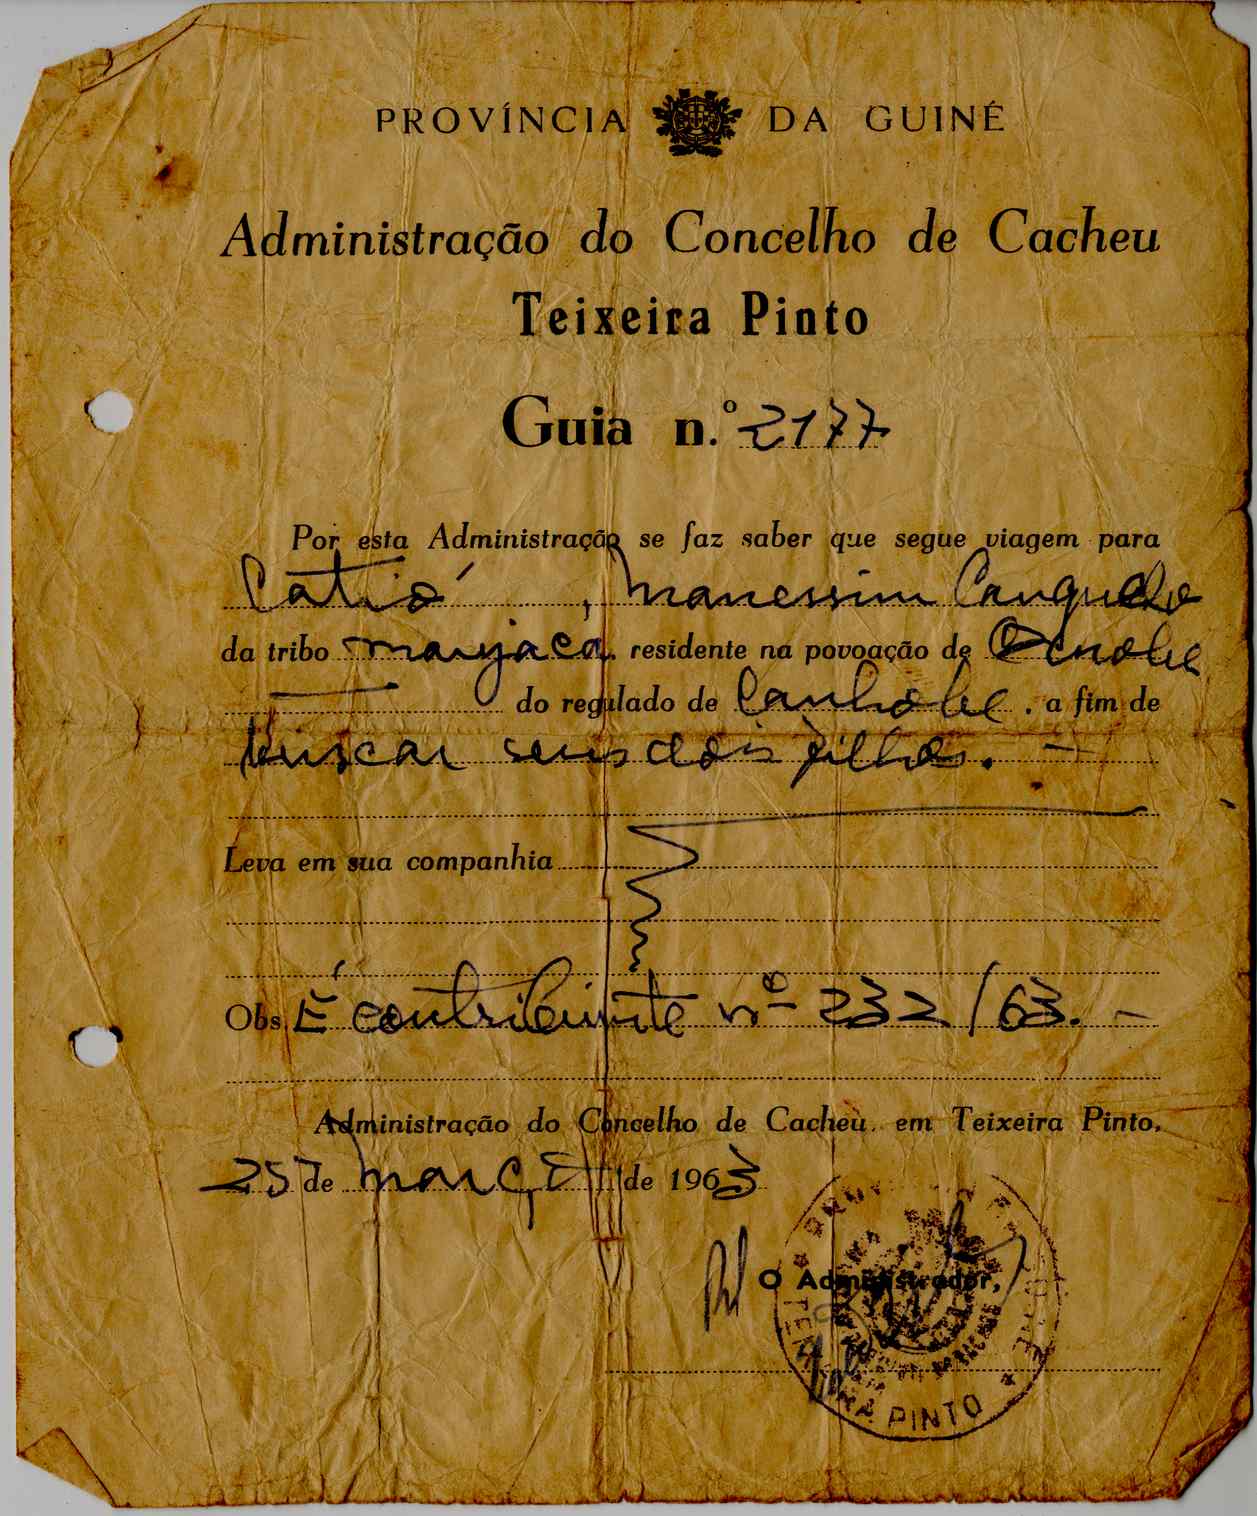 PROVÍNCIA DA GUINÉ
Administração do Concelho de Cacheu
Teixeira Pinto
Guia n.º 2177
Por esta Administração se faz saber que segue viagem para
Catió, Manessim
da tribo manjaca, residente na povoação de
do regulado de Canhobe, a fim de
buscar seus dois filhos. —
Leva em sua companhia
Obs. É contribuinte nº 232/63. —
Administração do Concelho de Cacheu, em Teixeira Pinto,
25 de março de 1963
O Administrador,
TEIXEIRA PINTO